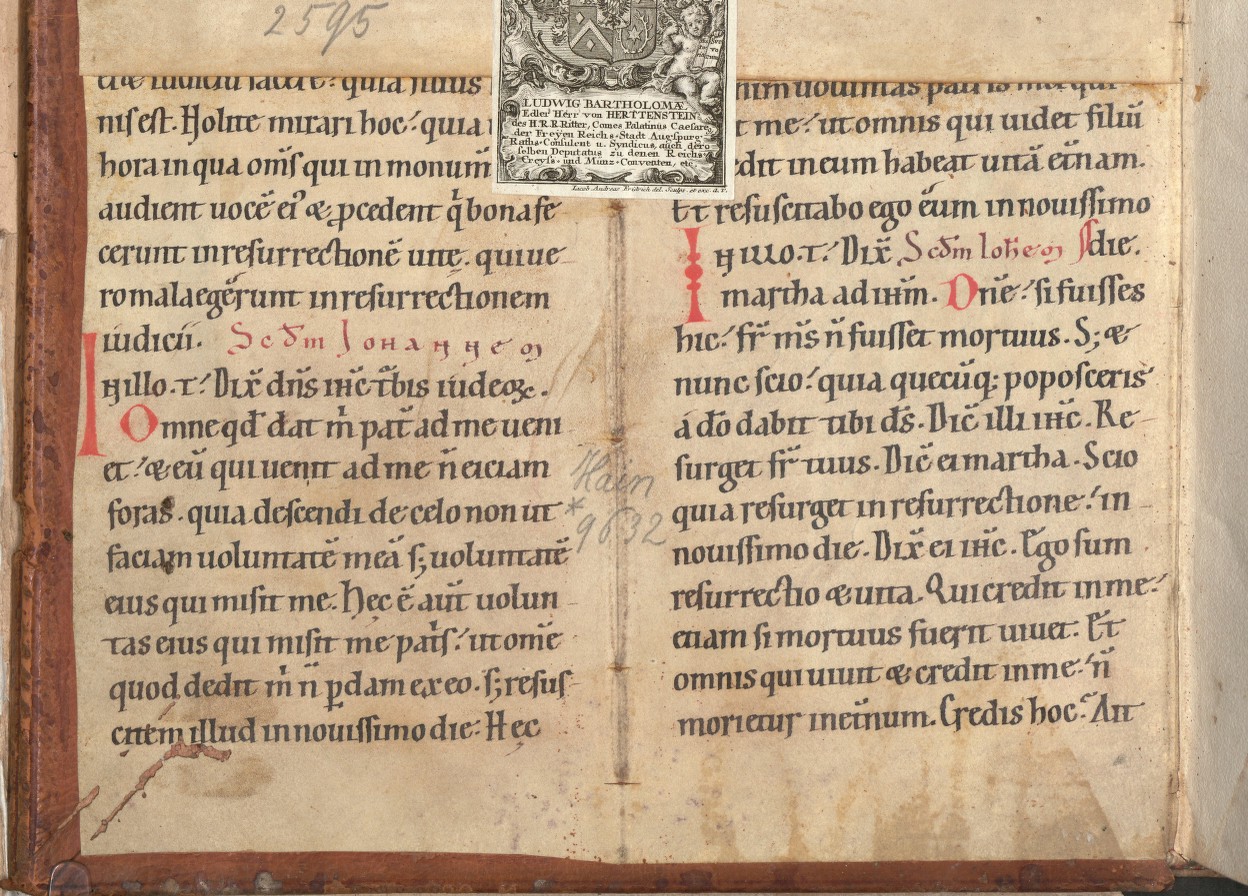 2595
LUDWIG BARTHOLOMÆ,
Edler Herr von HERTTENSTEIN
des H.R.R. Ritter, Comes Palatinus Caesare,
der Freyen Reichs-Stadt Augspurg
Raths-Consulent u. Syndicus, auch dero
selben Deputatus zu denen Reichs-
Creyss- und Munz-Conventen, etc.
Jacob Andreas Fridrich del. Sculps. et exc. A. V.
iudiciu facere: quia filius
nis est. Nolite mirari hoc: quia
hora in qua om̄s qui in monum̄
audient uocē ei᾽ & ꝓcedent q̇ bona fe
cerunt in resurrectionē uitę. qui ue
ro mala egeꝛ̄unt in resurrectionem
iudicii. Scd̄m Johannem
In illo.t: Dix̄ dn̄s ih̄c tb̄is iudeoꝝ.
Omne qd̄ dat ṁ pat̄ ad me ueni
et: & eū qui uenit ad me n̄ eiciam
foras. quia descendi de celo non ut
faciam uoluntatē meā s; uoluntatē
eius qui misit me. Hec ē aut̄ uolun
tas eius qui misit me pat̄s: ut om̄e
quod dedit ṁ n̄ ꝑdam ex eo. s; resus
citem illud in nouissimo die. Hęc
t me: ut omnis qui uidet filiū
edit in eum habeat uitā et̄nam.
Et resuscitabo ego eum in nouissimo
In illo.t: Dix̄ Scd̄m Ioh̄em die.
martha ad ih̄m. Dn̄e: si fuisses
hic: fr̄ m̄s n̄ fuisset mortuus. S; &
nunc scio: quia quecūq; poposceris
á dō dabit tibi ds̄. Dic̄ illi ih̄c. Re
surget fr̄ tuus. Dic̄ ei martha. Scio
quia resurget in resurrectione: in
nouissimo die. Dix̄ ei ih̄c. Ego sum
resurrectio & uita. Qui credit in me:
etiam si mortuus fuerit uiuet. Et
omnis qui uiuit & credit in me: n̄
morietur in et̄num. Credis hoc? Ait
Hain
*9632